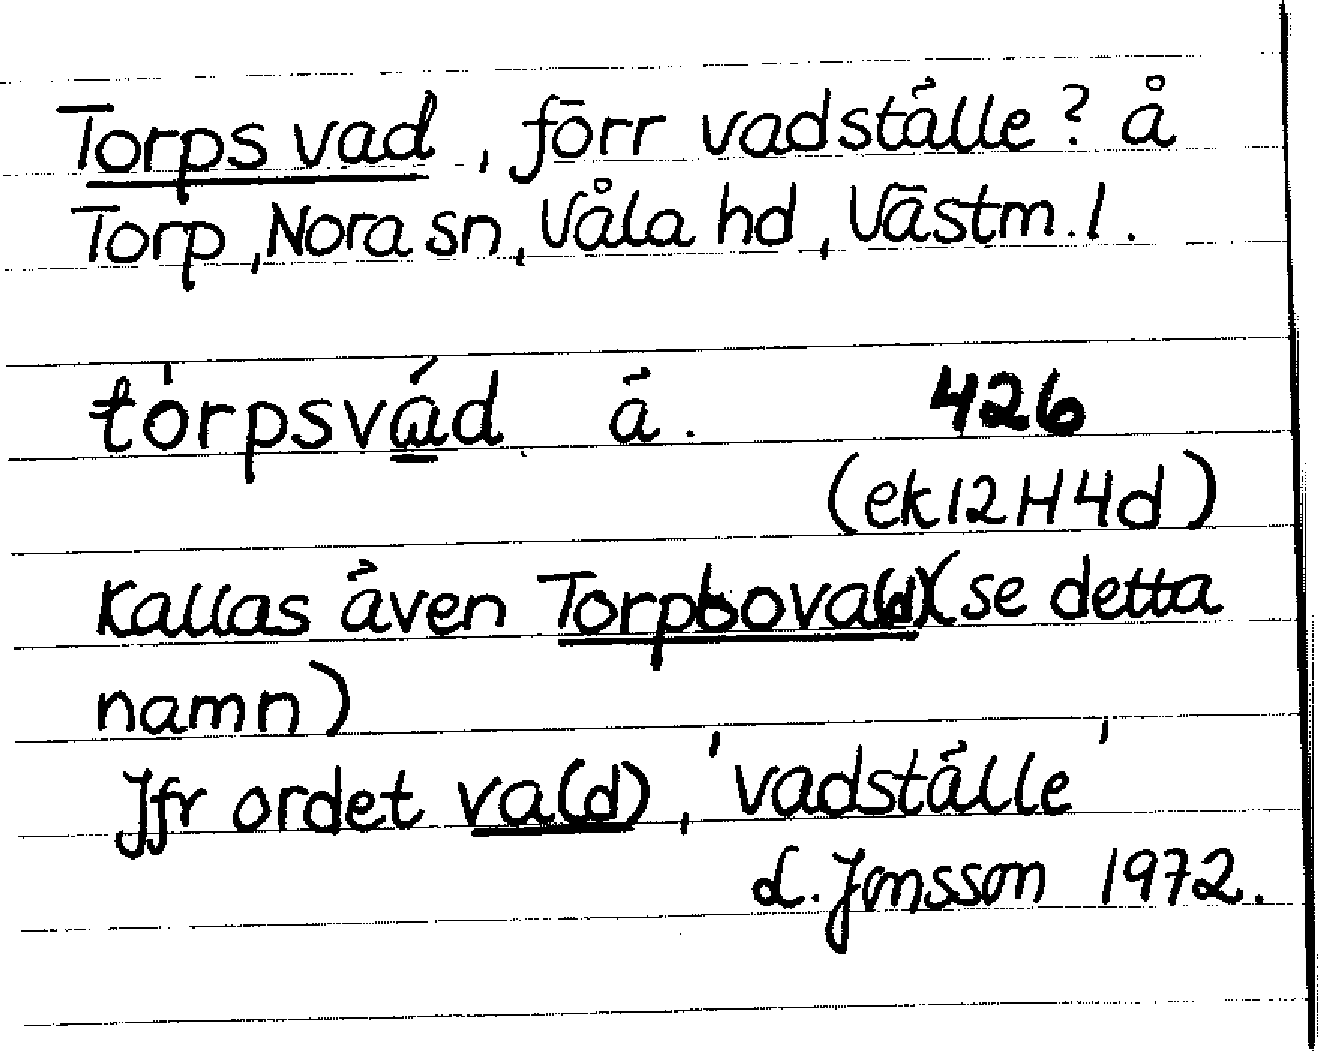 Torpsvad, förr vadställe? å
Torp, Nora sn, Våla hd, Västm. l.
tórpsvád ä. 426
(ek 12H4d)
Kallas även Torpbova(d) (se detta
namn)
Jfr ordet va(d), 'vadställe'
L. Jonsson 1972.